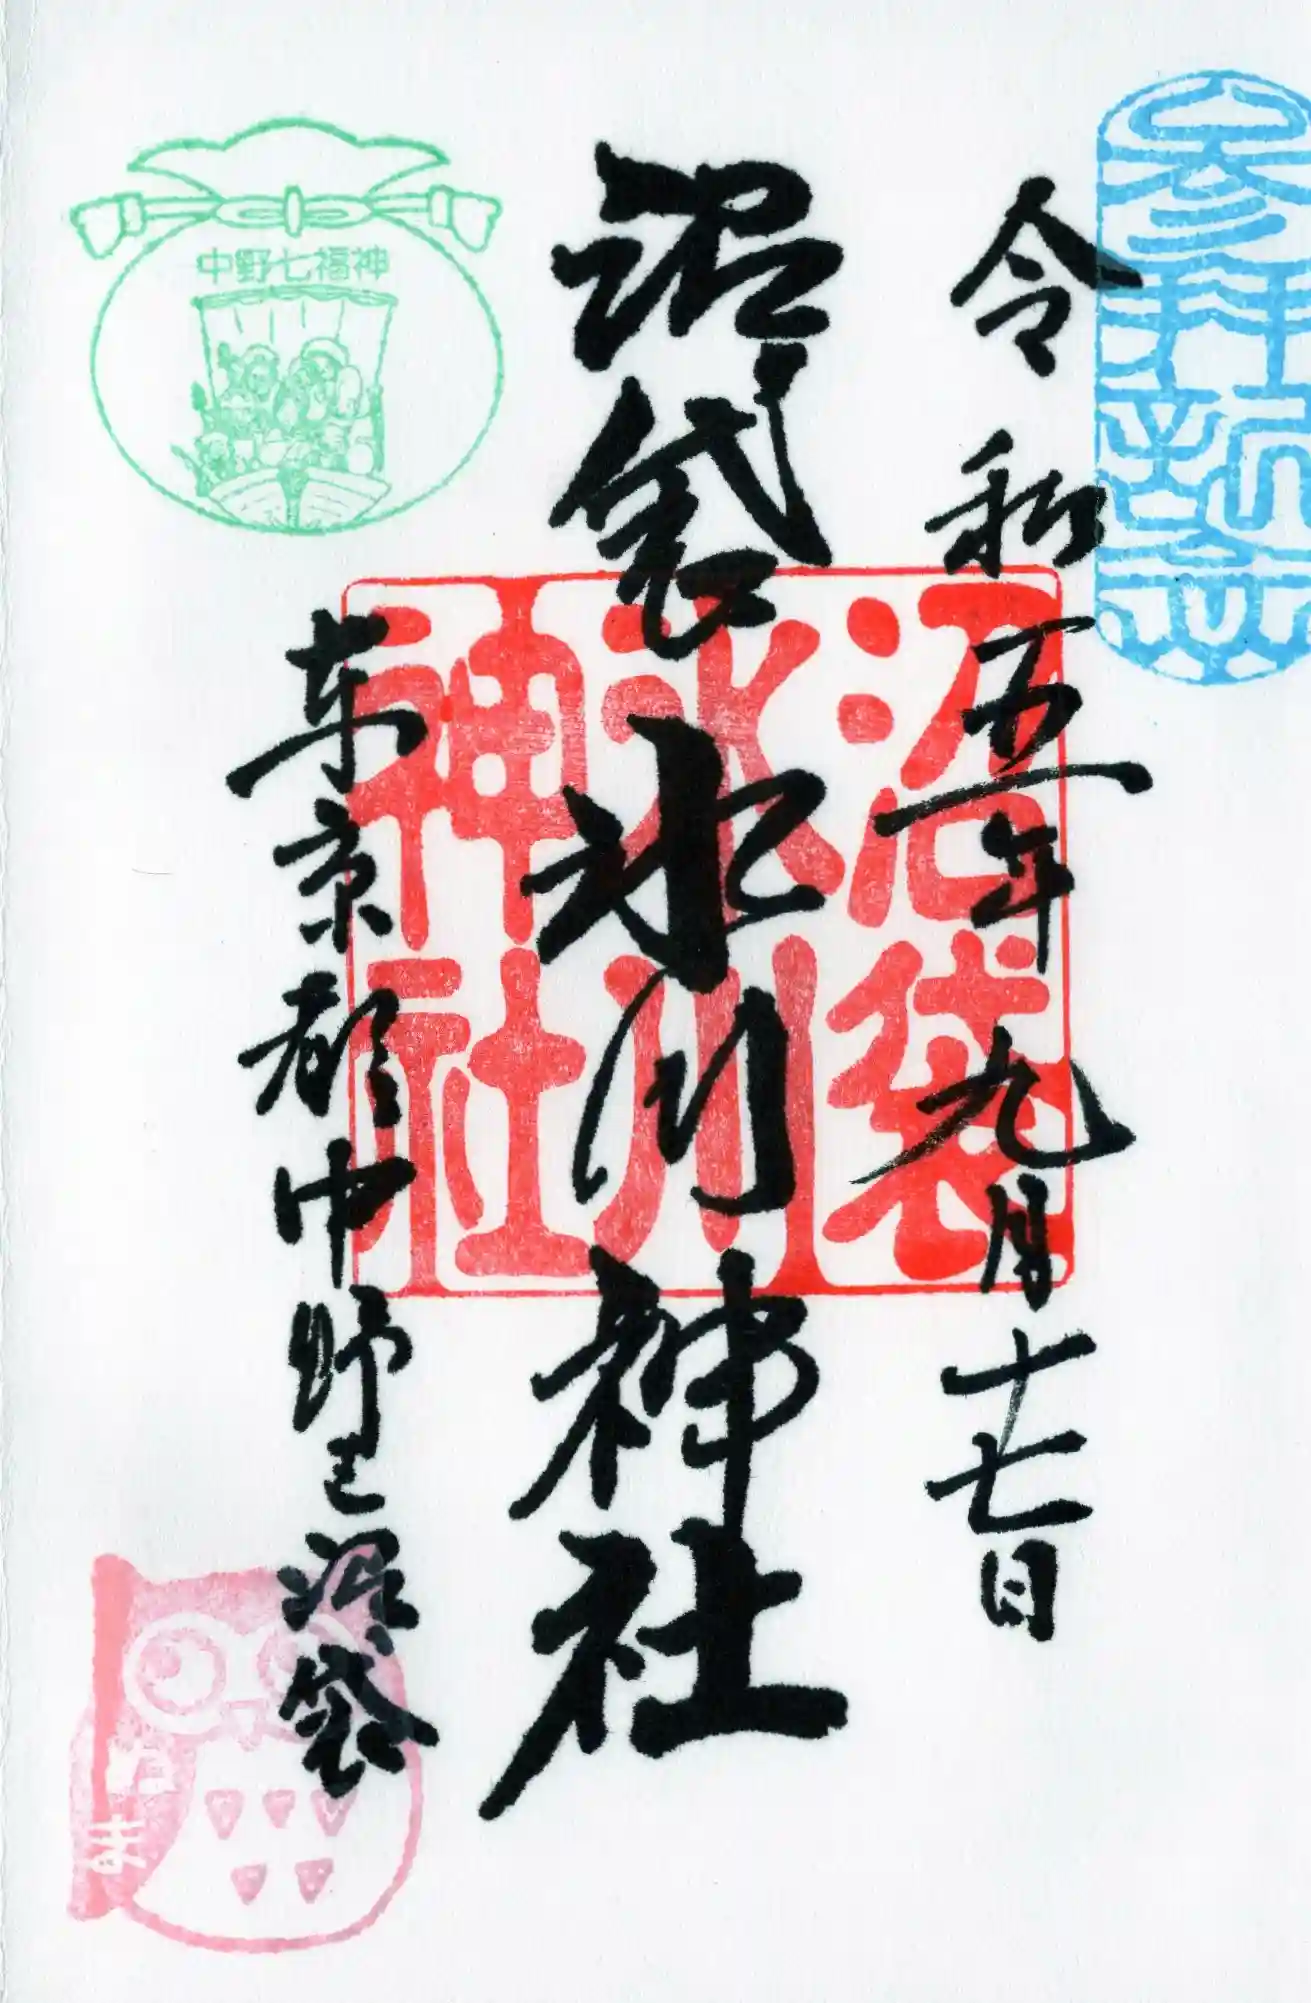 参拝記念
令和五年九月十七日
沼袋氷川神社
沼袋
氷川
神社
中野七福神
東京都中野区沼袋
ぬま